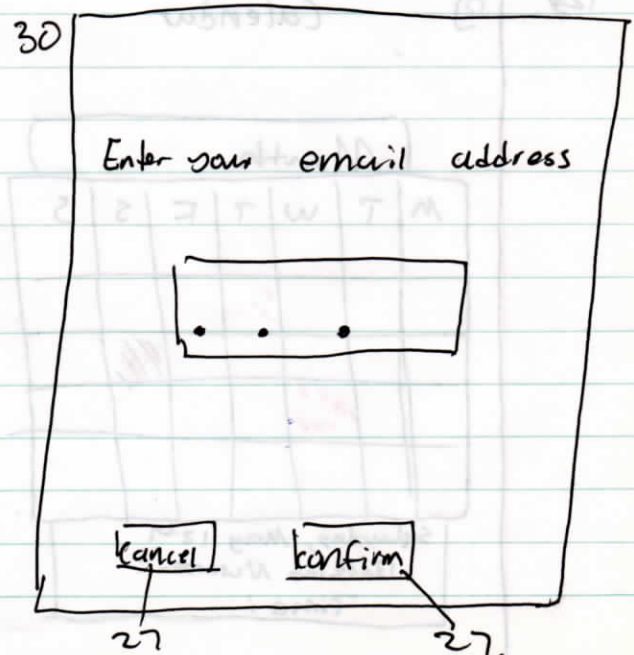 30
Enter your email address
...
Cancel confirm
27 27.